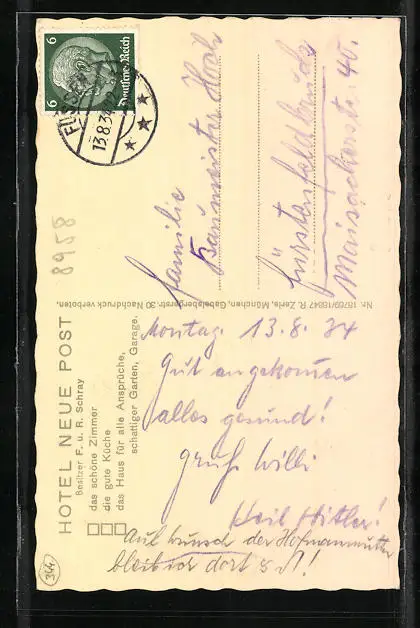 6 Deutsches Reich 6
FÜSSEN
13.8.34
8958
Familie
Baumeister Hoch
Fürstenfeldbruck
Maisacherstr. 40.
Nr. 18769/18847 R. Zerle, München, Gabelsbergerstr. 30 Nachdruck verboten.
HOTEL NEUE POST
Besitzer F. u. R. Schray
das schöne Zimmer
die gute Küche
das Haus für alle Ansprüche,
schattiger Garten, Garage.
Montag. 13.8.34
Gut angekommen
alles gesund!
Gruß Willi
Heil Hitler!
Auf Wunsch der
bleib ich dort
344